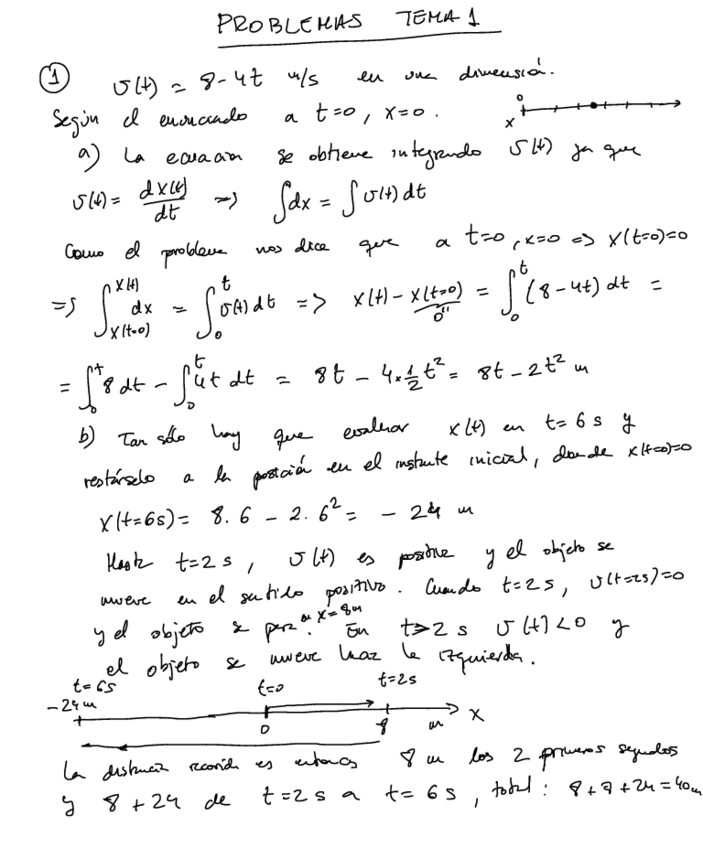 PROBLEMAS TEMA 1
① v(t) = 8-4t m/s en una dimensión.
Según el enunciado a t=0, x=0. 0 x
a) La ecuación se obtiene integrando v(t) ya que
v(t) = dx(t)/dt => ∫dx = ∫v(t) dt
Como el problema nos dice que a t=0, x=0 => x(t=0)=0
=> ∫_{x(t=0)}^{x(t)} dx = ∫_0^t v(t) dt => x(t) - x(t=0) = ∫_0^t (8-4t) dt =
0
= ∫_0^t 8 dt - ∫_0^t 4t dt = 8t - 4·1/2 t² = 8t - 2t² m
b) Tan sólo hay que evaluar x(t) en t=6 s y
restárselo a la posición en el instante inicial, donde x(t=0)=0
x(t=6s) = 8·6 - 2·6² = -24 m
Hasta t=2 s, v(t) es positiva y el objeto se
mueve en el sentido positivo. Cuando t=2s, v(t=2s)=0
y el objeto se para en x=8m. En t>2 s v(t)<0 y
el objeto se mueve hacia la izquierda.
t=6s t=0 t=2s
-24 m 0 8 m x
La distancia recorrida es entonces 8 m los 2 primeros segundos
y 8+24 de t=2 s a t=6 s, total: 8+8+24=40m